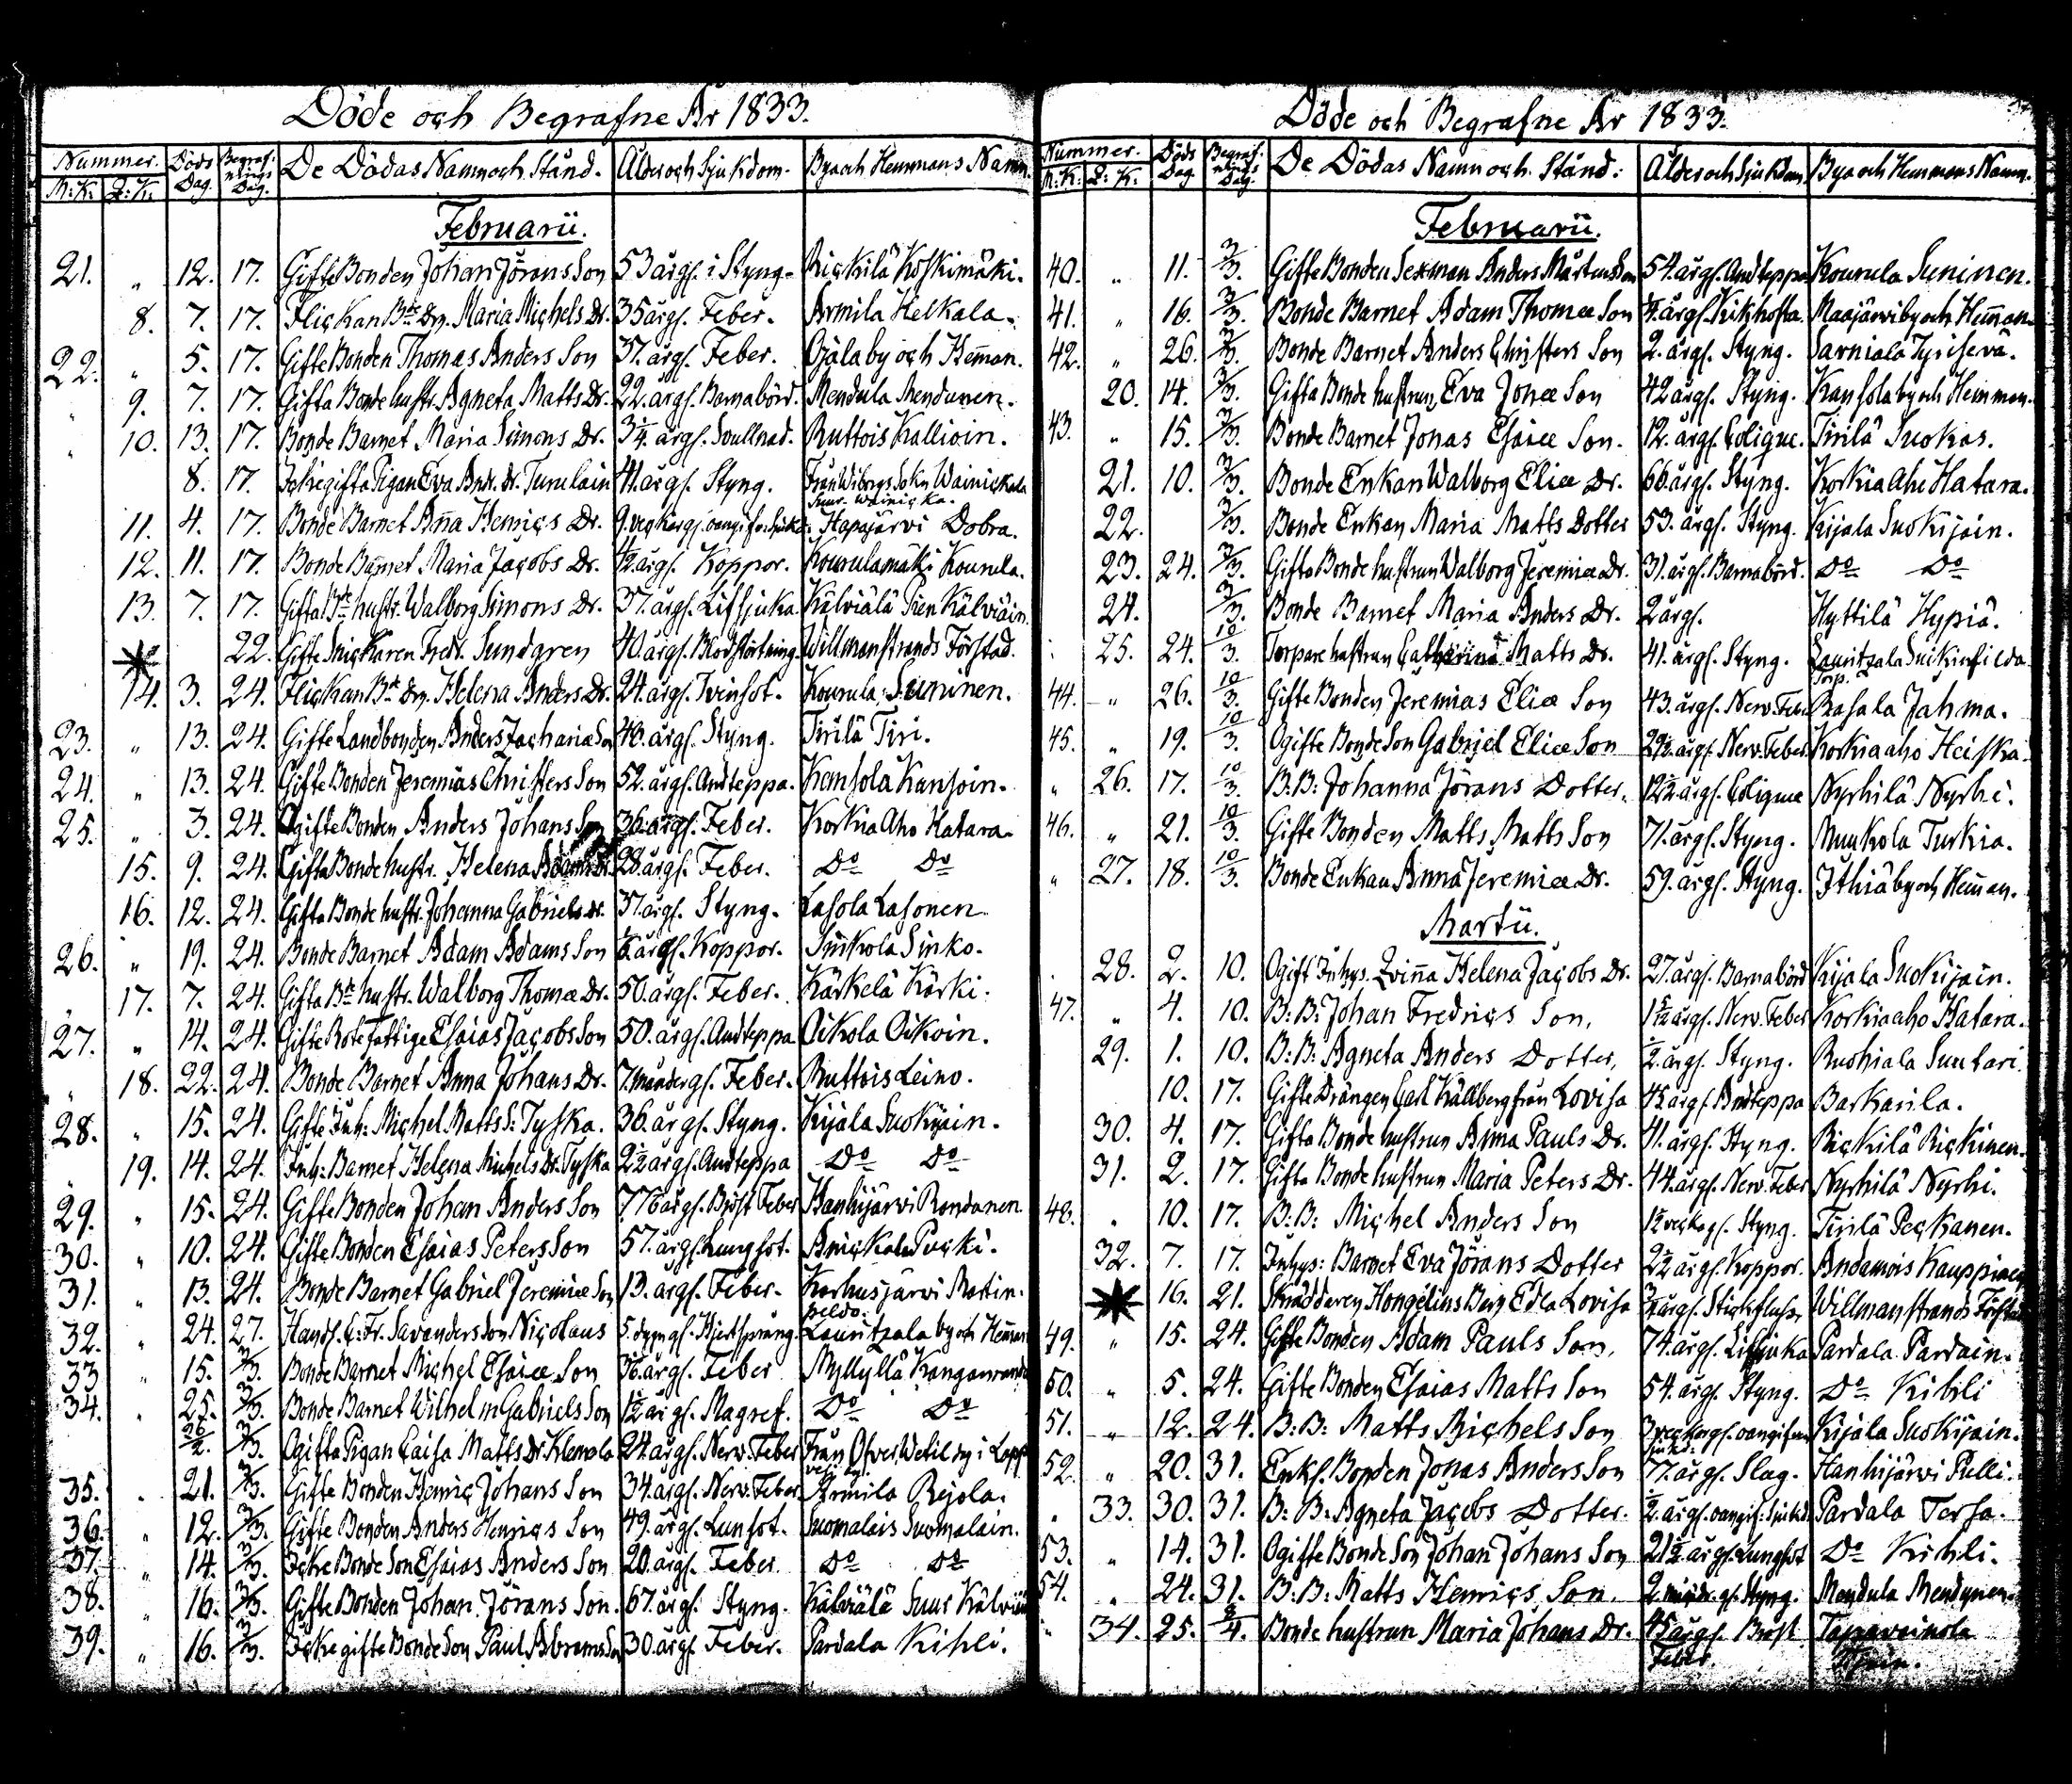 Döde och Begrafne År 1833.
Nummer. Döds Dag. Begrafnings Dag. De Dödas Namn och Stånd. Ålder och Sjukdom. By och Hemmans Namn.
M:K. Q:K.
Februarii.
21. " 12. 17. Gifte Bonden Johan Jörans Son 53 årgl. i Styng. Rickilä Koskimäki.
8. 7. 17. Flickan Bde Dr. Maria Michels Dr. 35 årgl. Feber. Armila Helkala.
22. " 5. 17. Gifte Bonden Thomas Anders Son 37. årgl. Feber. Ojala by och Hem̄an.
" 9. 7. 17. Gifta Bonde hustr. Agneta Matts Dr. 22. årgl. Barnabörd. Mendula Mendunen.
" 10. 13. 17. Bonde Barnet Maria Simons Dr. 3/4. årgl. Svullnad. Ruttois Kallioin.
8. 17. Icke gifta Pigan Eva Andr. Dr. Turulain 41. årgl. Styng. Från Wiborgs Sokn Wainickala
Suur Wainicka.
11. 4. 17. Bonde Barnet Anna Henrics Dr. 9. veckargl. oangifv. sjukd. Hapajärvi Dobra.
12. 11. 17. Bonde Barnet Maria Jacobs Dr. 1/2 årgl. Koppor. Kourulamäki Kourula.
13. 7. 17. Gifta Bde hustr. Walborg Simons Dr. 37. årgl. Lifsjuka Kälviälä Pien Kälviäin.
22. Gifte Snickaren Fredr. Sundgren 40. årgl. Blodstörtning. Willmanstrands Förstad.
14. 3. 24. Flickan Bde Dr. Helena Anders Dr. 24. årgl. Tvinsot. Kourula Suninen.
23. " 13. 24. Gifte Landbonden Anders Zachariæ Son 46. årgl. Styng. Tirilä Tiri.
24. " 13. 24. Gifte Bonden Jeremias Christers Son 52. årgl. Andteppa. Kansola Kansoin.
25. " 3. 24. Ogifte Bonden Anders Johans Son 36. årgl. Feber. Korkia Aho Hatara.
15. 9. 24. Gifta Bonde hustr. Helena Adams Dr. 28. årgl. Feber. Do Do
16. 12. 24. Gifta Bonde hustr. Johanna Gabriels Dr. 57. årgl. Styng. Lasola Lasonen
26. " 19. 24. Bonde Barnet Adam Adams Son årgl. Koppor. Sinkola Sinko.
" 17. 7. 24. Gifta Bde hustr. Walborg Thomæ Dr. 50. årgl. Feber. Kärkelä Kärki.
27. " 14. 24. Gifte Rote Fattige Esaias Jacobs Son 50. årgl. Andteppa. Oikola Oikoin.
" 18. 22. 24. Bonde Barnet Anna Johans Dr. 7. månder gl. Feber. Ruttois Leino.
28. " 15. 24. Gifte Inh: Michel Matts S: Tyska. 36. årgl. Styng. Kijala Suokijain.
" 19. 14. 24. Inh: Barnet Helena Michels Dr. Tyska 2 1/2 årgl. Andteppa Do Do
29. " 15. 24. Gifte Bonden Johan Anders Son 76 årgl. Bröst Feber Hanhijärvi Rondanen.
30. " 10. 24. Gifte Bonden Esaias Peters Son 57. årgl. Lungsot. Anickala Pucki.
31. " 13. 24. Bonde Barnet Gabriel Jeremiæ Son 13. årgl. Feber. Karhusjärvi Martin.
peldo.
32. " 24. 27. Handl. C: Fr. Savanders Son Nicolaus 5. dygn gl. Hjertsprång. Lauritzala by och Hem̄an
33 " 15. 3/3. Bonde Barnet Michel Esaiæ Son årgl. Feber Myllylä Kangasranda
34. " 25. 3/3. Bonde Barnet Wilhelm Gabriels Son 1 1/2 årgl. Magref. Do Do
26/2. 3/3. Ogifta Pigan Caisa Matts Dr. Klemola 24. årgl. Nerv. Feber Från Öfver Wetil by i Lappo
35. " 21. 3/3. Gifte Bonden Henric Johans Son 34. årgl. Nerv. Feber Armila Rejola.
36. " 12. 3/3. Gifte Bonden Anders Henrics Son 49. årgl. Lunsot. Suomalais Suomalain.
37. " 14. 3/3. Icke Bonde Son Esaias Anders Son 20. årgl. Feber Do Do
38. " 16. 3/3. Gifte Bonden Johan Jörans Son. 67. årgl. Styng. Kälviälä Suur Kälviäin
39. " 16. 3/3. Icke gifte Bonde Son Paul Abrams Son 30. årgl. Feber. Pardala Kihli.
Döde och Begrafne År 1833.
Nummer. Döds Dag. Begrafnings Dag. De Dödas Namn och Stånd. Ålder och Sjukdom By och Hemmans Namn.
M:K. Q:K.
Februarii.
40. " 11. 3/3. Gifte Bonden Sexman Anders Mårtens Son 54. årgl. Andteppa Kourula Suninen.
41. " 16. 3/3. Bonde Barnet Adam Thomæ Son årgl. Kikhosta. Maajärvi by och Hem̄an.
42. " 26. 3/3. Bonde Barnet Anders Christers Son 2. årgl. Styng. Sarviala
20. 14. 3/3. Gifta Bonde hustrun Eva Jonæ Son 42 årgl. Styng. Kansola by och Hemman.
43. " 15. 3/3. Bonde Barnet Jonas Esaiæ Son. 12. årgl. Colique. Tirilä Suokas.
21. 10. 3/3. Bonde Enkan Walborg Eliæ Dr. 66. årgl. Styng. Korkia Aho Hatara.
22. 3/3. Bonde Enkan Maria Matts Dotter 53. årgl. Styng. Kijala Suokijain.
23. 24. 3/3. Gifta Bonde hustrun Walborg Jeremiæ Dr. 31. årgl. Barnabörd. Do Do
24. 3/3. Bonde Barnet Maria Anders Dr. 2 årgl. Hyttilä Hypiä.
25. 24. 10/3. Torpare hustrun Catharina Matts Dr. 41. årgl. Styng. Lauritzala
Torp.
44. " 26. 10/3. Gifte Bonden Jeremias Eliæ Son 43. årgl. Nerv. Feb. Rasala Jahma.
45. " 19. 10/3. Ogifte Bonde Son Gabriel Eliæ Son 29 1/2. årgl. Nerv. Feber. Korkiaaho Heiska.
" 26. 17. 10/3. B:B: Johanna Jörans Dotter. 12 1/2 årgl. Colique Nyrhilä Nyrhi.
46. " 21. 10/3. Gifte Bonden Matts Matts Son 71. årgl. Styng. Muukola Turkia.
" 27. 18. 10/3. Bonde Enkan Anna Jeremiæ Dr. 59. årgl. Styng. Ithiä by och Hem̄an.
Martii.
28. 2. 10. Ogift Inhys. Qvinna Helena Jacobs Dr. 27. årgl. Barnabörd Kijala Suokijain.
47. " 4. 10. B:B: Johan Fredrics Son, årgl. Nerv. Feber Korkiaaho Hatara.
29. 1. 10. B:B: Agneta Anders Dotter, 1/2. årgl. Styng. Ruohiala Suutari.
10. 17. Gifte Drängen Carl Källberg från Lovisa årgl. Andteppa Barkarila.
30. 4. 17. Gifta Bonde hustrun Anna Pauls Dr. 41. årgl. Styng. Rickilä Rickinen.
31. 2. 17. Gifta Bonde hustrun Maria Peters Dr. 44. årgl. Nerv. Feber Nyrhilä Nyrhi.
48. " 10. 17. B:B: Michel Anders Son veckogl. Styng. Tirilä Peckanen.
32. 7. 17. Inhys: Barnet Eva Jörans Dotter 2 1/2 årgl. Koppor. Andamois Kauppinen
16. 21. Skräddaren Hongelins Barn Edla Lovisa årgl. Stickfluss. Willmanstrands Förstad
49. " 15. 24. Gifte Bonden Adam Pauls Son, 74. årgl. Lifsjuka Pardala Pardain.
50. " 5. 24. Gifte Bonden Esaias Matts Son 54. årgl. Styng. Do Kihli
51. " 12. 24. B:B: Matts Michels Son 3 veckorgl. oangifven Kijala Suokijain.
sjukd.
52. " 20. 31. Enkl. Bonden Jonas Anders Son 77. årgl. Slag. Hanhijärvi Pulli.
" 33. 30. 31. B:B: Agneta Jacobs Dotter. 1/2. årgl. oangif: sjukd. Pardala Tersa.
53. " 14. 31. Ogifte Bonde Son Johan Johans Son 21 1/2. årgl. Lungsot Do Kihli.
54. " 24. 31. B:B: Matts Henrics Son. 2. gl. Styng. Mendula Mendunen.
" 34. 25. Bonde hustrun Maria Johans Dr. 45 årgl. Bröst
Feber.